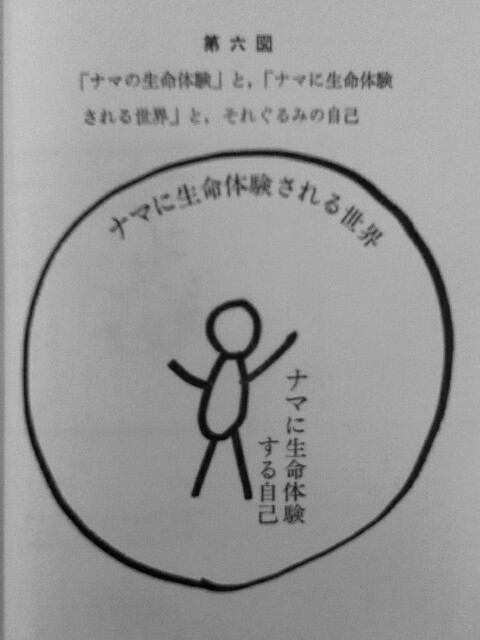 第六図
「ナマの生命体験」と，「ナマに生命体験
される世界」と，それぐるみの自己
ナマに生命体験される世界
ナマに生命体験
する自己